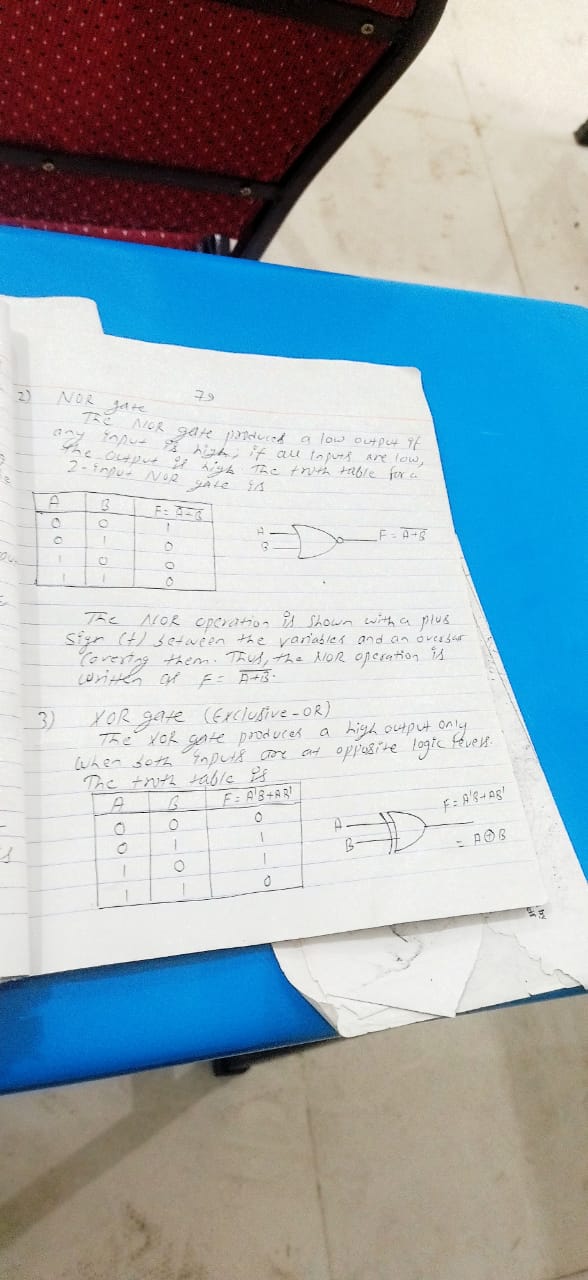 79
2) NOR gate
The NOR gate produces a low output if
any input is high; if all inputs are low,
the output is high The truth table for a
2-input NOR gate is
A B F = \overline{A+B}
0 0 1
0 1 0
1 0 0
1 1 0
A
B
F = \overline{A+B}
The NOR operation is shown with a plus
sign (+) between the variables and an overbar
covering them. Thus, the NOR operation is
written as F = \overline{A+B}.
3) XOR gate (Exclusive-OR)
The XOR gate produces a high output only
when both inputs are at opposite logic levels.
The truth table is
A B F = A'B+AB'
0 0 0
0 1 1
1 0 1
1 1 0
A
B
F = A'B+AB'
= A⊕B